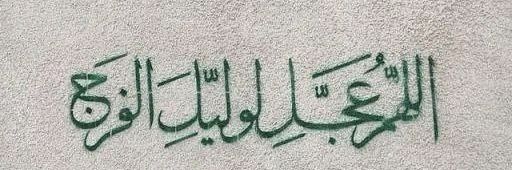 اللهُمَّ عَجِّلْ لِوَلِيِّكَ الفَرَج